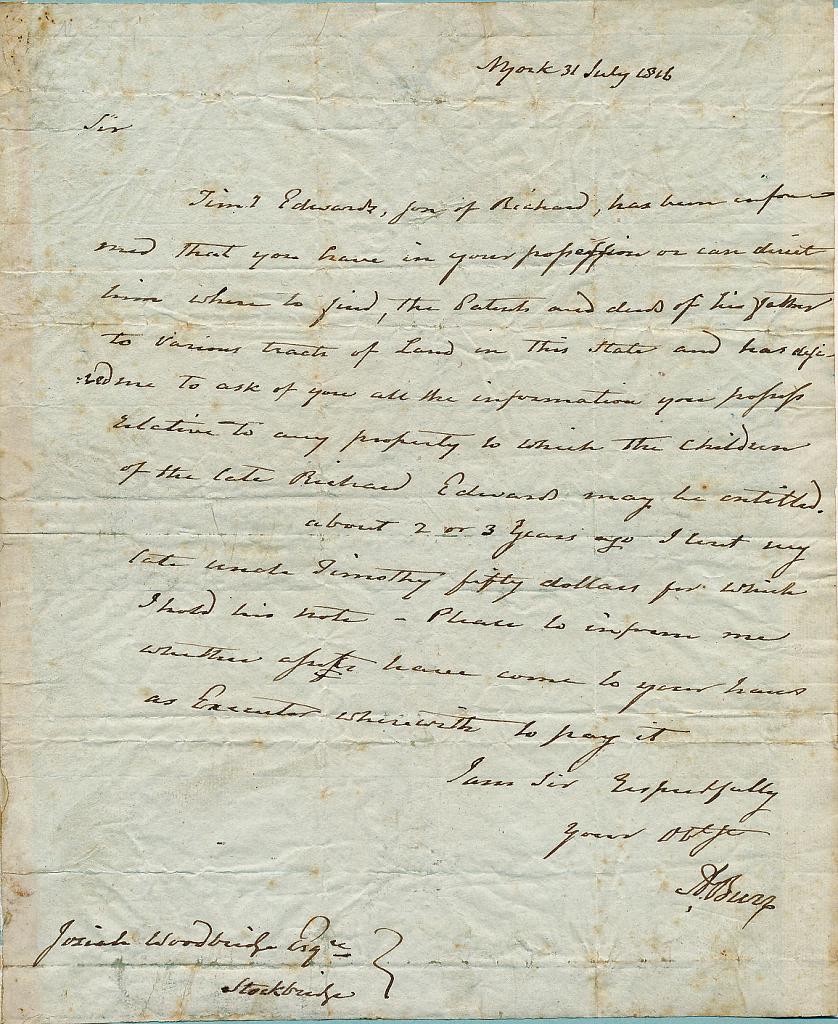 NYork 31 July 1816
Sir
Timy Edwards, son of Richard, has been infor-
med that you have in your possession or can direct
him where to find, the Patents and deeds of his father
to various tracts of Land in this State and has desi-
-red me to ask of you all the information you possess
relative to any property to which the children
of the late Richard Edwards may be entitled.
about 2 or 3 Years ago I lent my
late uncle Timothy fifty dollars for which
I hold his note - Please to inform me
whether assets have come to your hands
as Executor wherewith to pay it
I am Sir Respectfully
Your Obt St
A. Burr
Josiah Woodbridge Esqre }
Stockbridge